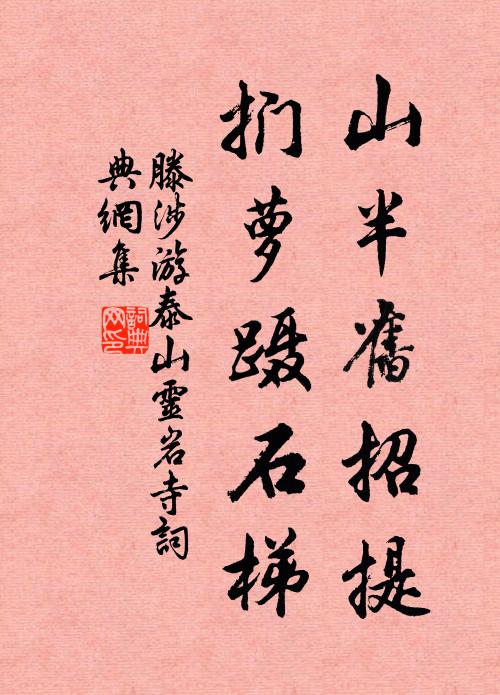 山半舊招提
捫萝蹑石梯
滕涉游泰山靈岩寺詞
典網集
詞典
网印